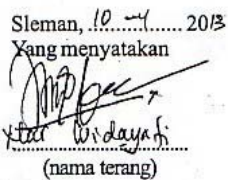 Sleman, 10 - 4 2013
Yang menyatakan
Widayati
(nama terang)